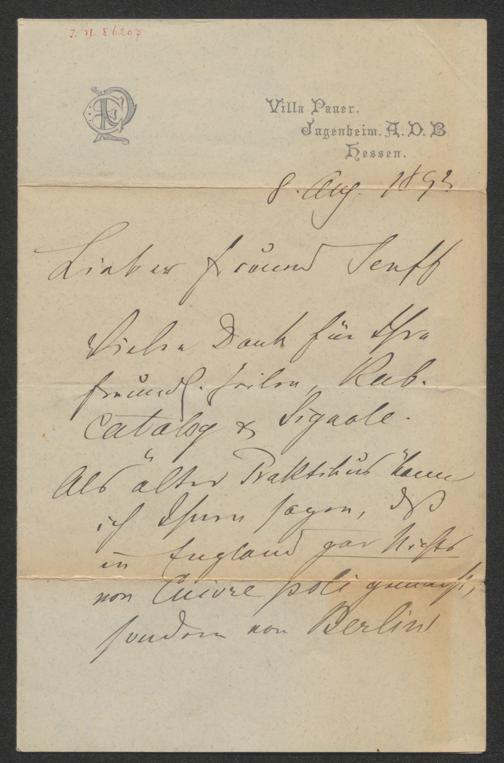 J. N. 86207
Villa Pauer.
Jugenheim. A. D. B
Hessen.
8. Aug. 1893
Lieber Freund Senff
Vielen Dank für Ihre
freundl. Zeilen, Rub.
Catalog & Signale.
Als "alter Praktikus" kann
ich Ihnen sagen, daß
in England gar Nichts
von Cuivre poli gemacht,
sondern von Berlin